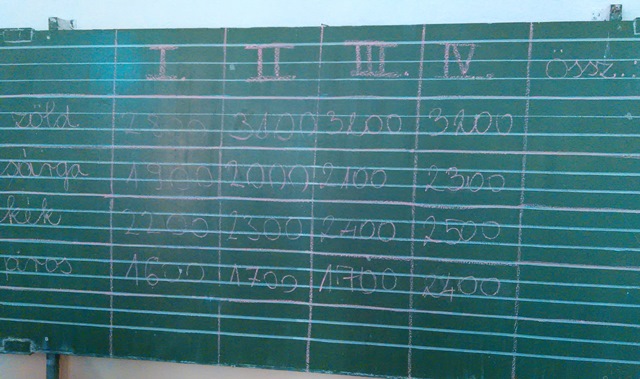 I. II. III. IV. össz...
zöld 3100 3200 3200
sárga 1900 2000 2100 2300
kék 2200 2300 2400 2500
piros 1600 1700 1700 2400